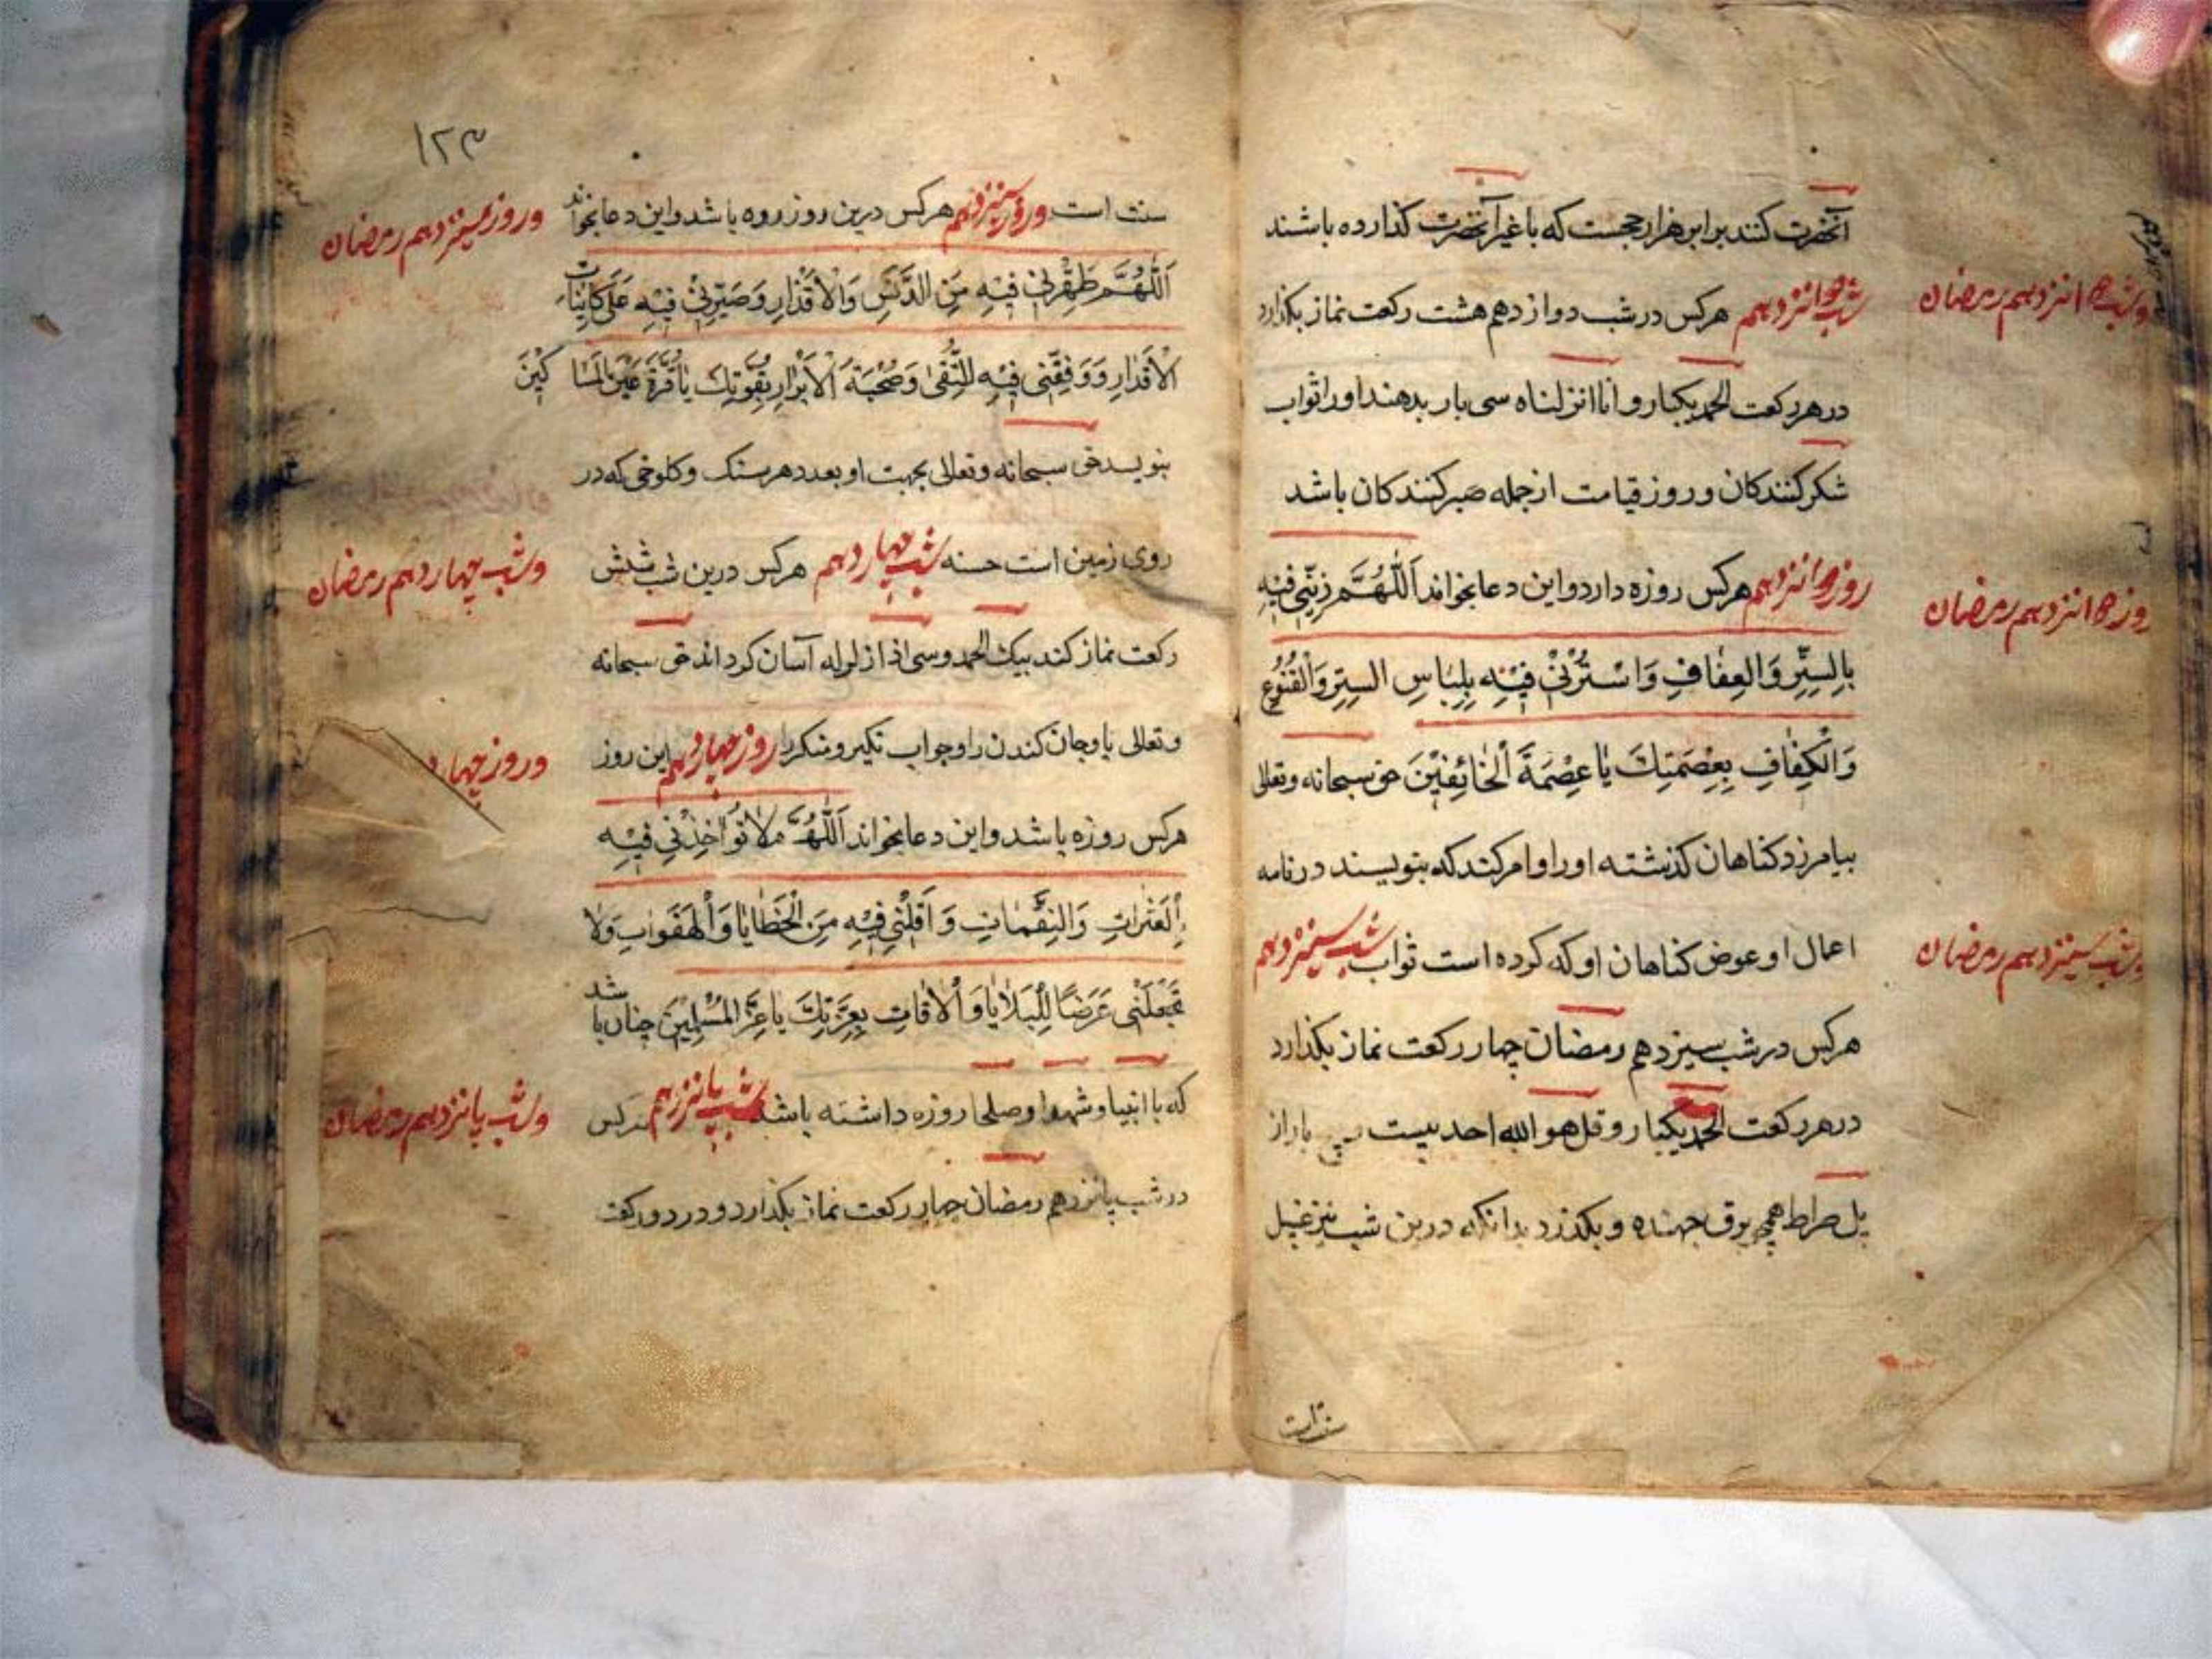 آنحضرت کنند برابر هزار حجست که با غیر آنحضرت کذارده باشند
وشب دوانزدهم رمضان
شب دوانزدهم هرکس در شب دوازدهم هشت رکعت نماز بکذارد
در هر رکعت الحمد یکبار و انا انزلناه سی بار بدهند اورا ثواب
شکر کنندکان و روز قیامت از جمله صبر کنندکان باشد
روز دوانزدهم رمضان
روز دوانزدهم هرکس روزه دارد و این دعا بخواند اَللّٰهُمَّ زَیِّنّی فیْهِ
بِالسِّتْرِ وَالعِفٰافِ وَاسْتُرْنیْ فیْهِ بِلِبٰاسِ السِتِرِ وَالْقُنُوُعِ
وَالْکِفٰافِ بِعِصْمَتِكَ یٰا عِصْمَةَ اْلخٰائِفیْنَ حق سبحانه وتعالی
بیامرزد کناهان کذشته اورا و امر کند که بنویسند در نامه
وشب سینزدهم رمضان
اعمال او عوض کناهان او که کرده است ثواب شب سینزدهم
هرکس در شب سیزدهم رمضان چهار رکعت نماز بکذارد
در هر رکعت الحمد یکبار و قل هو الله احد بیست بار از
پل صراط همچو برق جهنده و بکذرد بدانکه درین شب نیز غسل
سنت است
۱۲۳
وروز سینزدهم رمضان
سنت است وروز سینزدهم هرکس درین روز روزه باشد و این دعا بخواند
اَللّٰهُمَّ طَهِّرْنی فیْهِ مِنَ الدَّنَسِ وَالْاَقْذٰارِ وَصَیِّرْنیْ فیْهِ عَلیٰ کاٰئِناٰتِ
الْاَقْدٰارِ وَوَفِقّنی فیْهِ لِلتُّقیٰ وَصُحْبَةَ الْاَبْرٰارِ بِقُوَّتِكَ یٰا قُرَّةَ عَیْنِ الْمَسٰاکیْنَ
بنویسد حق سبحانه وتعالی بجهت او بعدد هر سنک و کلوخی که در
وشب چهاردهم رمضان
روی زمین است حسنه شب چهاردهم هرکس درین شب شش
رکعت نماز کند بیک الحمد و سی اذا زلزله آسان کرداند حق سبحانه
وروز چهار
وتعالی باو جان کندن را و جواب نکیر و منکر را روز چهاردهم این روز
هرکس روزه باشد و این دعا بخواند اَللّٰهُمَّ لاٰ تُوٰاخِذْنی فیْهِ
بِالْعَثَرٰاتِ وَالنِقَمٰاتِ وَاَقِلْنی فیْهِ مِنَ الْخَطٰایٰا وَاْلهَفَوٰاتِ وَلاٰ
تَجْعَلْنی عَرَضًا لِلْبَلاٰیٰا وَاْلاٰفاتِ بِعِزَّتِكَ یٰا عِزَّ الْمُسْلِمیْنَ چنان باشد
وشب پانزدهم رمضان
که با انبیا و شهدا و صلحا روزه داشته باشد شب پانزدهم هرکس
در شب پانزدهم رمضان چهار رکعت نماز بکذارد و در دو رکعت